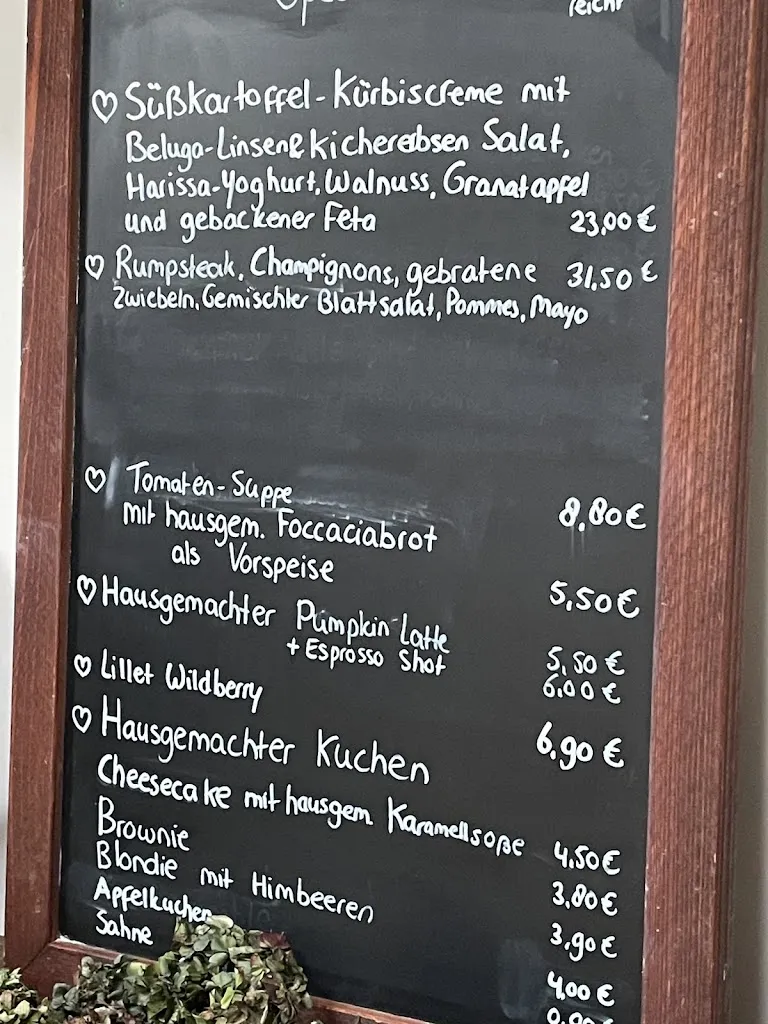 ♡ Süßkartoffel-Kürbiscreme mit
Beluga-Linsen & Kichererbsen Salat,
Harissa-Yoghurt, Walnuss, Granatapfel
und gebackener Feta 23,00 €
♡ Rumpsteak, Champignons, gebratene 31,50 €
Zwiebeln, Gemischter Blattsalat, Pommes, Mayo
♡ Tomaten-Suppe 8,80 €
mit hausgem. Foccaciabrot
als Vorspeise 5,50 €
♡ Hausgemachter Pumpkin Latte 5,50 €
+ Esprosso Shot 6,00 €
♡ Lillet Wildberry 6,90 €
♡ Hausgemachter Kuchen
Cheesecake mit hausgem. Karamellsoße 4,50 €
Brownie 3,80 €
Blondie mit Himbeeren 3,90 €
Apfelkuchen 4,00 €
Sahne